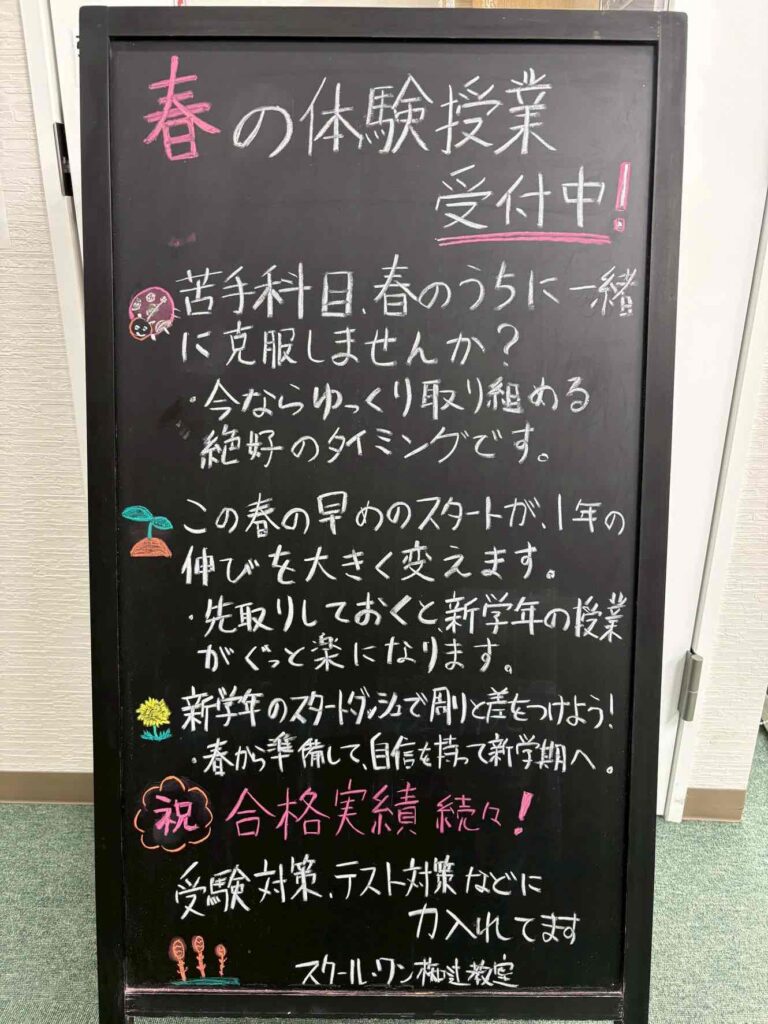 春の体験授業
受付中!
苦手科目、春のうちに一緒
に克服しませんか?
・今ならゆっくり取り組める
絶好のタイミングです。
この春の早めのスタートが、1年の
伸びを大きく変えます。
・先取りしておくと、新学年の授業
がぐっと楽になります。
新学年のスタートダッシュで周りと差をつけよう!
・春から準備して、自信を持って新学期へ。
祝 合格実績 続々!
受験対策、テスト対策などに
力入れてます
スクール・ワン 教室